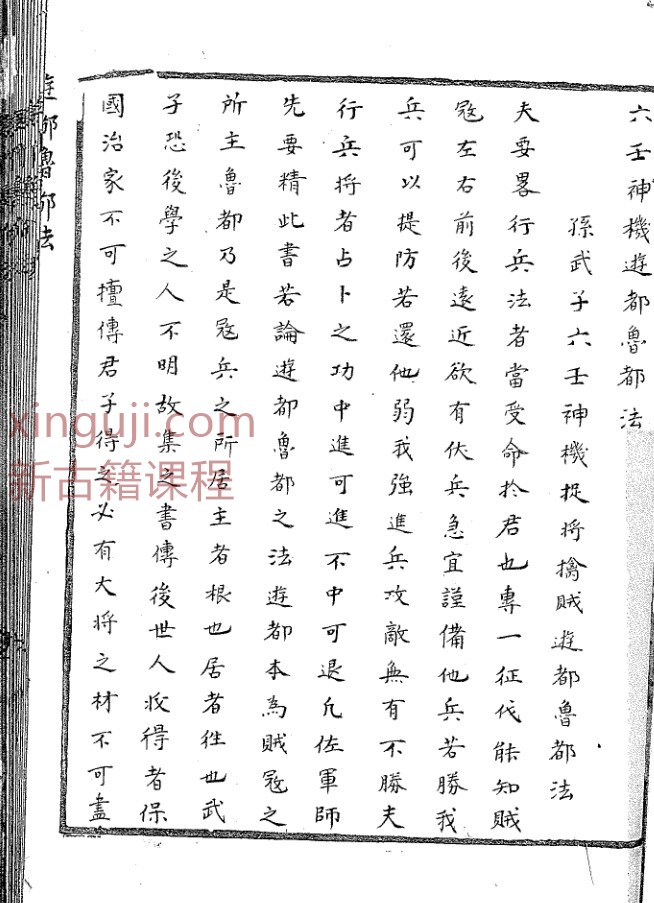 六壬神機遊都魯都法
孫武子六壬神機捉將擒賊遊都魯都法
夫要畧行兵法者當受命於君也專一征伐能知賊
冦左右前後遠近欲有伏兵急宜謹備他兵若勝我
兵可以提防若還他弱我強進兵攻敵無有不勝夫
行兵將者占卜之功中進可進不中可退凡佐軍師
先要精此書若論遊都魯都之法遊都本為賊冦之
所主魯都乃是冦兵之所居主者根也居者住也武
子恐後學之人不明故集之書傳後世人收得者保
國治家不可擅傳君子得之必有大將之材不可盡
遊都魯都法
xinguji.com
新古籍课程